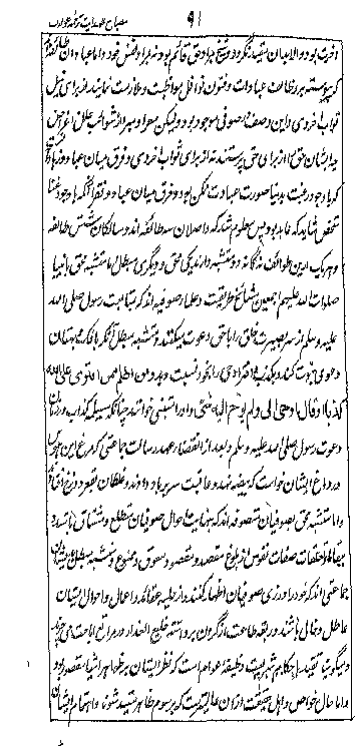 ۹۱ مصباح الهدایت ترجمه عوارف
آخرت بود و العبدان مقید نگردد و شیخ مراد حق قائم بود نه برای خود اما عباد آن طائفه
که پیوسته بر وظائف عبادات و فنون نوافل مواظبت و ملازمت نمایند از برای نیل
ثواب اخروی و این وصف در صوفی موجود بود و لیکن معرا و مبرا از شوائب علل و اغراض
چه ایشان حق را از برای حق پرستند نه از برای ثواب اخروی و فرق میان عباد و زهاد
که با وجود رغبت بدنیا صورت عبادت ممکن بود و فرق میان عباد و فقرا آنکه با وجود غنا
شخص شاید که عابد بود پس معلوم شد که واصلان سه طائفه اند و سالکان شش طائفه
و هر یک ازین طوائف نه گانه دو متشبه دارند یکی محق و دیگری مبطل اما متشبه محق بانبیا
صلوات الله علیهم اجمعین مشائخ طریقت و علماء صوفیه اند که بمتابعت رسول صلی الله
علیه و سلم از سر بصیرت خلق را با حق دعوت میکنند و متشبه مبطل آنکه
دعوی نبوت کنند و بکذب و افترا وحی را بخود نسبت دهد و من اظلم ممن افتری علی الله
کذبا او قال اوحی الی ولم یوح الیه شئ و او را متنبی خوانند چنانکه مسیلمه کذاب در زمان
دعوت رسول صلی الله علیه و سلم و بعد از انقضاء عهد رسالت جماعتی که مرغ این هوس
در دماغ ایشان خواست که بیضه نهد و عاقبت سر بباد دادند و غلطان بقعر دوزخ افتادند
و اما متشبه محق بصوفیان متصوفه اند که بنهایت احوال صوفیان متطلع و مشتاق باشند و
ببقایا تعلقات صفات نفوس از بلوغ مقصد و مقصود معوق و ممنوع و متشبه مبطل بایشان
جماعتی اند که خود را در زی صوفیان اظهار کنند و از حلیه عقائد و اعمال و احوال ایشان
عاطل و خالی باشند و ربقه طاعت از گردن برداشته خلیع العذار در مراتع اباحت می‌چرند
و میگویند تقید باحکام شریعت وظیفه عوام است که نظر ایشان بر ظواهر اشیا مقصور بود
و اما حال خواص و اهل حقیقت از ان عالیتر است که برسوم ظاهر مقید شوند و اهتمام ایشان